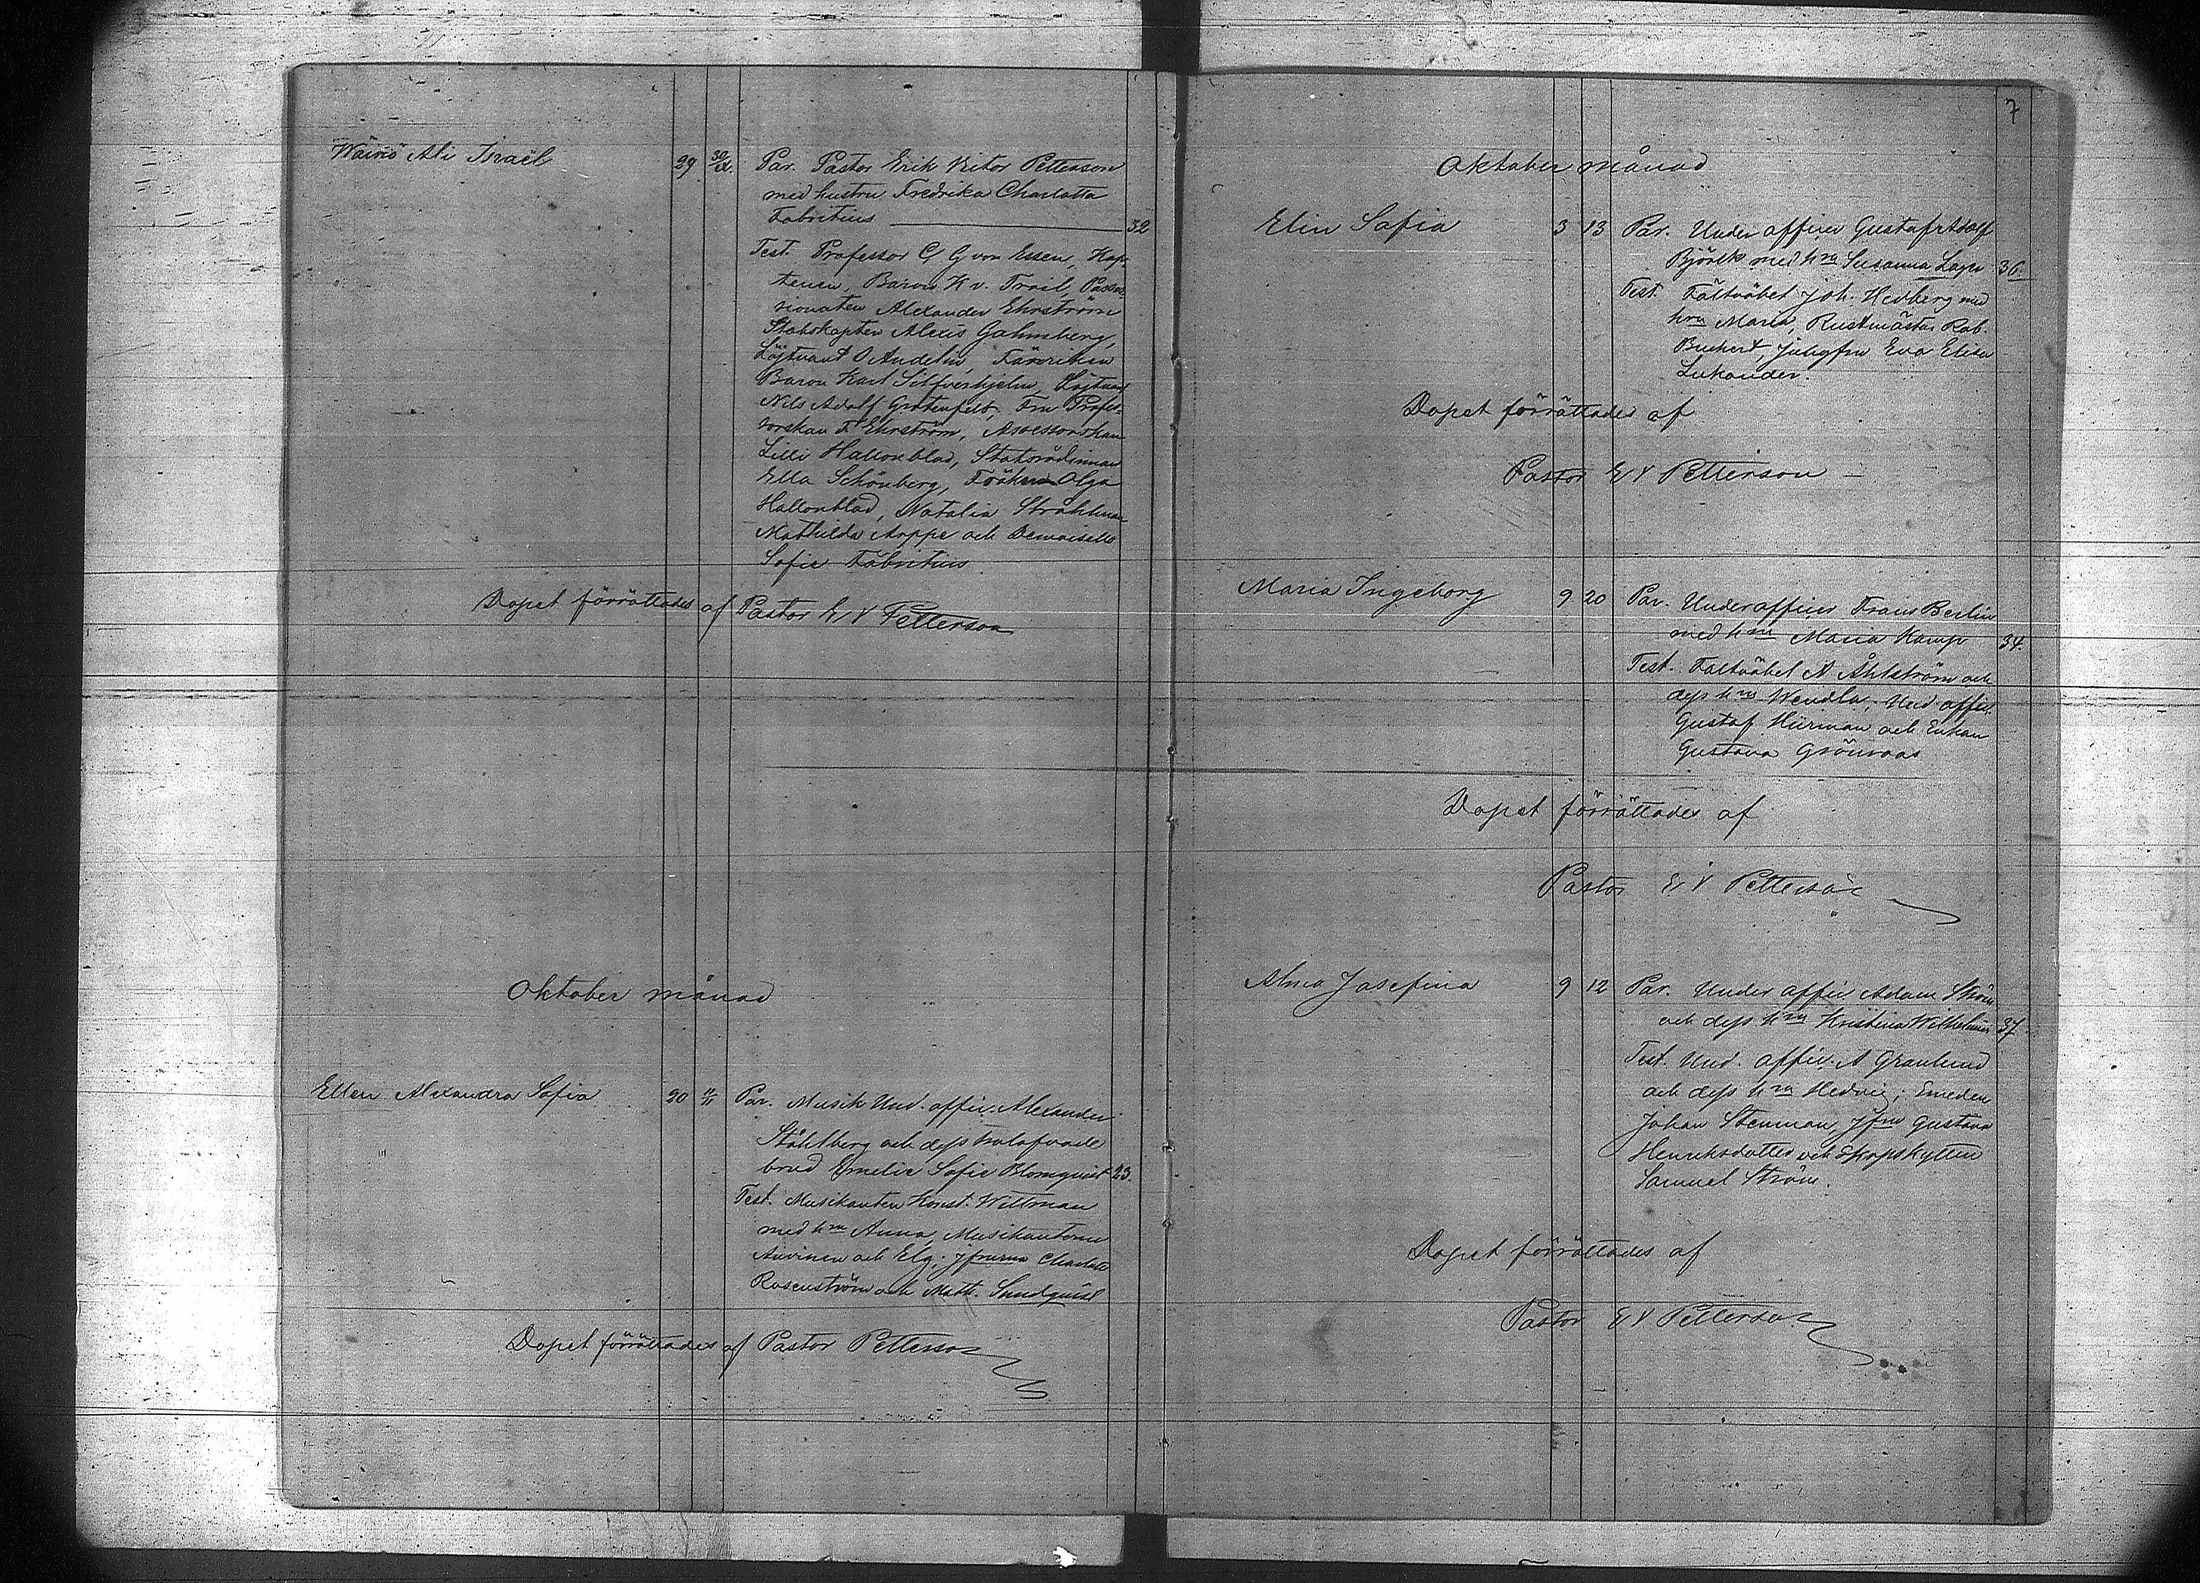 Wäinö Ali Israël 29 30/X. Par. Pastor Erik Victor Petterson
med hustru Fredrika Charlotta
Fabritius 32
Test. Professor C G von Essen, Kap-
tenen, Baron K v. Trail, Posses-
sionaten Alexander Ehrström
Stabskapten Alexis Gahmberg,
Löjtnant O Audelin, Fänriken
Baron Karl Silfverhjelm, Löjtnant
Nils Adolf Grotenfelt, Fru Profes-
sorskan F Ehrström, Assessorskan
Lilli Hallonblad, Statsrådinnan
Ella Schönberg, Fröken Olga
Hallonblad, Natalia Strählman
Mathilda Arppe och Demoiselle
Sofie Fabritius
Dopet förrättades af Pastor E V Petterson
Oktober månad
Ellen Alexandra Sofia 20 Par. Musik Und. offic. Alexander
Ståhlberg och dess trolofvade
brud Emelie Sofie Blomquist 23.
Test. Musikanten Konst. Wittman
med hru Anna, Musikanterne
Auvinen och Elg, jfrurna Charlotte
Rosenström och Math. Sundquist
Dopet förrättades af Pastor Petterson
7
Oktober månad
Elin Sofia 3 13 Par. Under officer Gustaf Adolf
Björck med hru Susanna 36.
Test. Fältväbel Joh. Hedberg med
hru Maria, Rustmästar Rob.
Buchert, Jungfru Eva Elisa
Lukander.
Dopet förrättades af
Pastor E V Petterson
Maria Ingeborg 9 20 Par. Underofficer Frans Berlin
med hru Maria Kamp 34.
Test. Fältväbel A Åhlström och
dess hru Wendla, Und. offic.
Gustaf Hürman och Enkan
Gustava Grönroos
Dopet förrättades af
Pastor E V Petterson
Alma Josefina 9 12 Par. Under offic Adam Ström
och dess hru Kristina Wilhelmina 37
Test. Und. offic. A Granlund
och dess hru Hedvig, Smeden
Johan Stenman, jfru Gustava
Henriksdotter och Skarpskytten
Samuel Ström.
Dopet förrättades af
Pastor E V Petterson